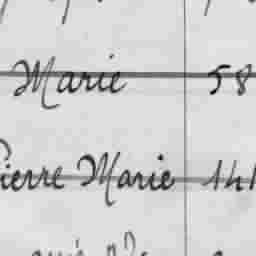 Marie 58
Pierre Marie 141